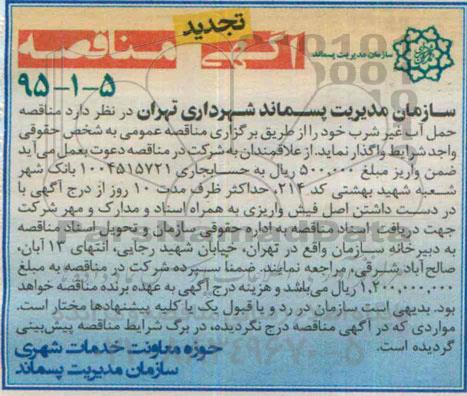 تجدید
آگهی مناقصه
سازمان مدیریت پسماند
۹۵-۱-۵
سازمان مدیریت پسماند شهرداری تهران در نظر دارد مناقصه
حمل آب غیر شرب خود را از طریق برگزاری مناقصه عمومی به شخص حقوقی
واجد شرایط واگذار نماید. از علاقمندان به شرکت در مناقصه دعوت بعمل می آید
ضمن واریز مبلغ ۵۰۰,۰۰۰ ریال به حسابجاری ۱۰۰۴۵۱۵۷۲۱ بانک شهر
شعبه شهید بهشتی کد ۲۱۴ حداکثر ظرف مدت ۱۰ روز از درج آگهی با
در دست داشتن اصل فیش واریزی به همراه اسناد و مدارک و مهر شرکت
جهت دریافت اسناد مناقصه به اداره حقوقی سازمان و تحویل اسناد مناقصه
به دبیرخانه سازمان واقع در تهران، خیابان شهید رجایی، انتهای ۱۳ آبان،
صالح آباد شرقی، مراجعه نمایند. ضمنا سپرده شرکت در مناقصه به مبلغ
۱,۲۰۰,۰۰۰,۰۰۰ ریال می باشد و هزینه درج آگهی به عهده برنده مناقصه خواهد
بود. بدیهی است سازمان در رد و یا قبول یک یا کلیه پیشنهادها مختار است.
مواردی که در آگهی مناقصه درج نگردیده، در برگ شرایط مناقصه پیش بینی
گردیده است.
حوزه معاونت خدمات شهری
سازمان مدیریت پسماند